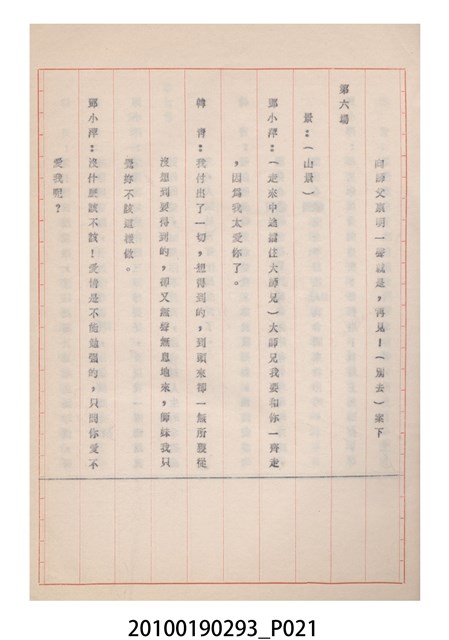 向師父稟明一聲就是，再見！（別去）塞下
第六場
景：（山景）
鄧小萍：（走來中途擋住大師兄）大師兄我要和你一齊走
，因為我太愛你了。
韓　青：我付出了一切，想得到的，到頭來卻一無所獲從
沒想到要得到的，卻又無聲無息地來，師妹我只
覺妳不該這樣做。
鄧小萍：沒什麼該不該！愛情是不能勉強的，只問你愛不
愛我呢？
20100190293_P021